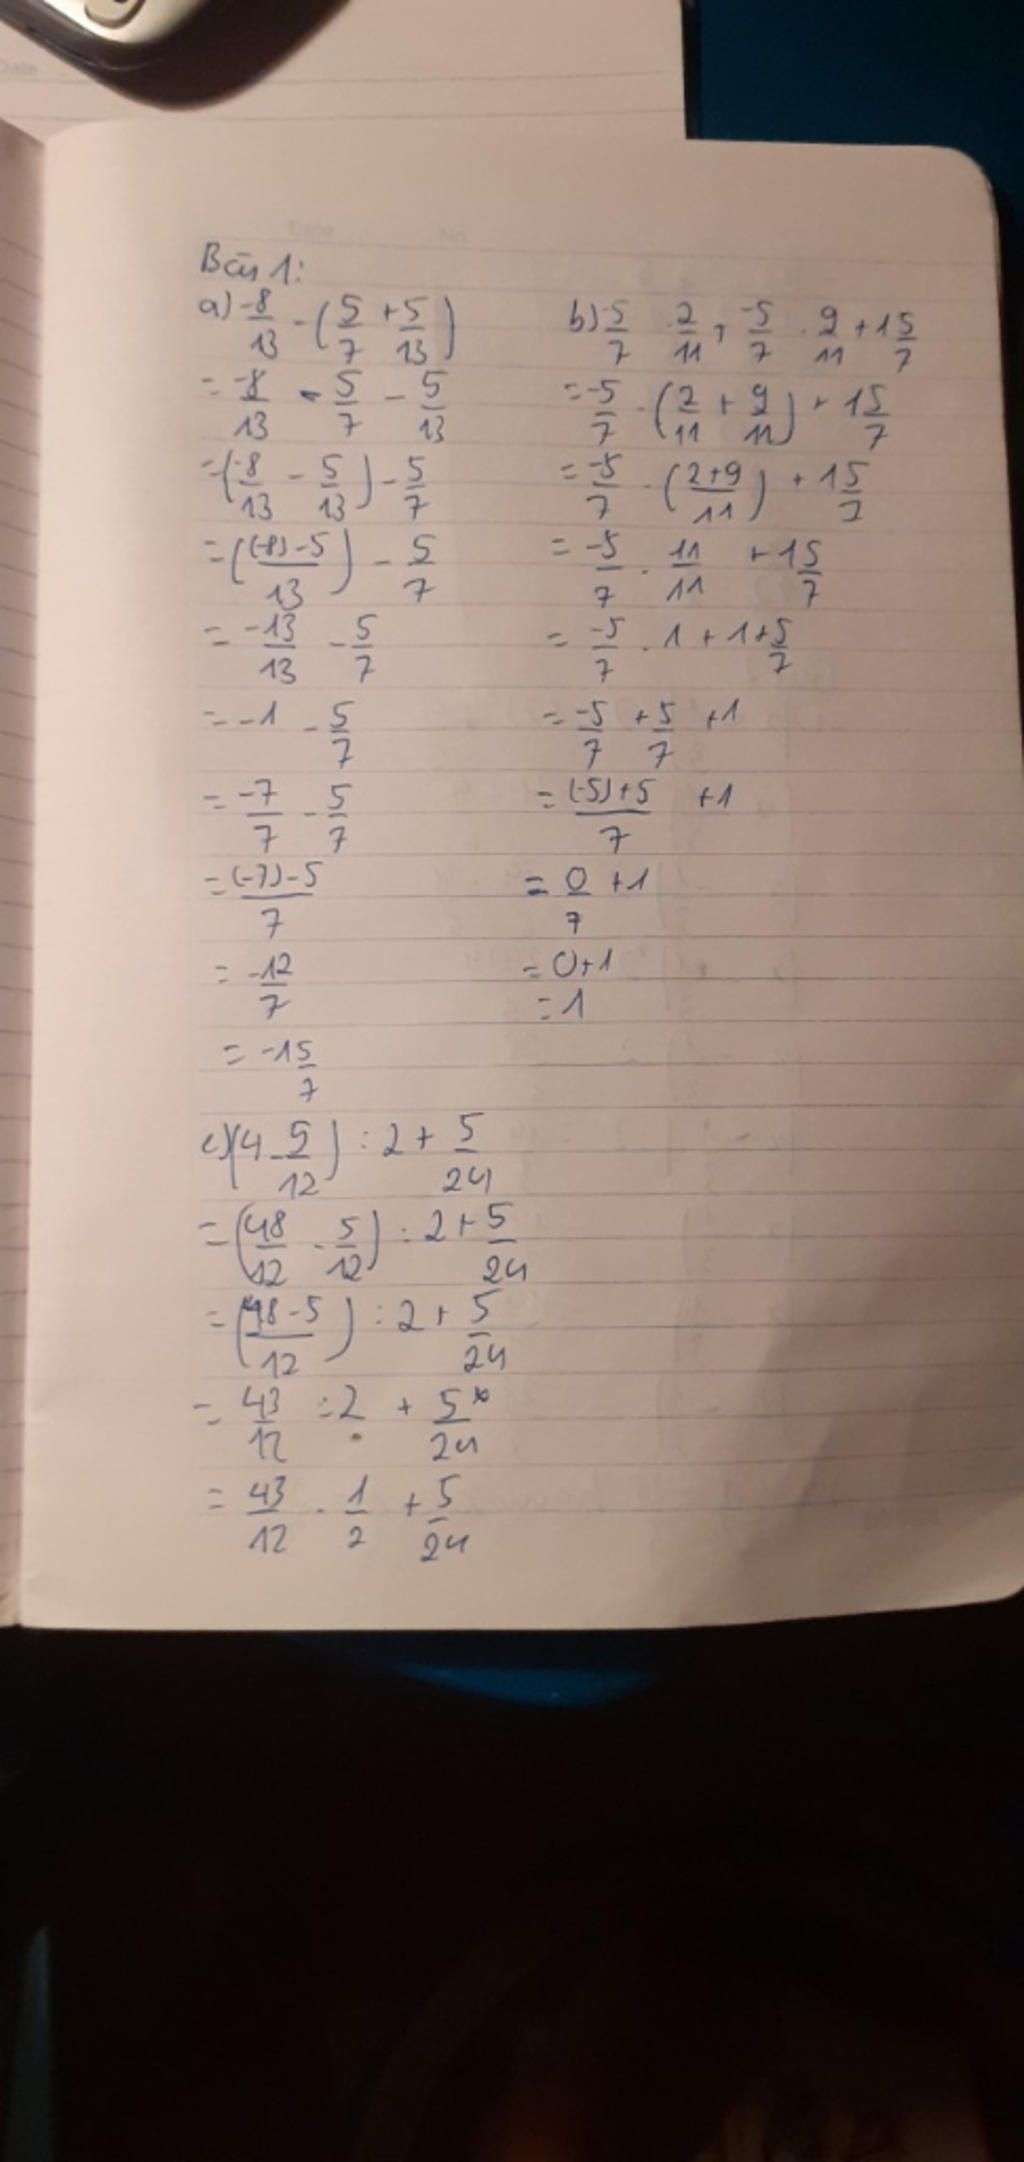 Date
Date No.
Bài 1:
a) -8/13 - (5/7 + 5/13)
= -8/13 - 5/7 - 5/13
= (-8/13 - 5/13) - 5/7
= ((-8)-5/13) - 5/7
= -13/13 - 5/7
= -1 - 5/7
= -7/7 - 5/7
= (-7)-5/7
= -12/7
= -1 5/7
b) -5/7 . 2/11 + -5/7 . 9/11 + 1 5/7
= -5/7 . (2/11 + 9/11) + 1 5/7
= -5/7 . (2+9/11) + 1 5/7
= -5/7 . 11/11 + 1 5/7
= -5/7 . 1 + 1 + 5/7
= -5/7 + 5/7 + 1
= (-5)+5/7 + 1
= 0/7 + 1
= 0+1
= 1
c) (4 - 5/12) : 2 + 5/24
= (48/12 - 5/12) : 2 + 5/24
= (48-5/12) : 2 + 5/24
= 43/12 : 2 + 5/24
= 43/12 . 1/2 + 5/24